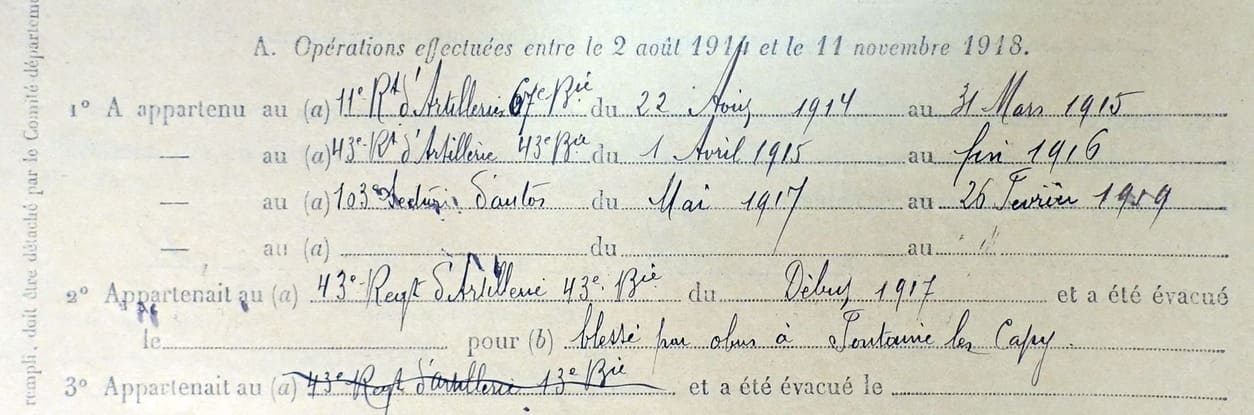 A. Opérations effectuées entre le 2 août 1914 et le 11 novembre 1918.
1° A appartenu au (a) 11e Rt d'Artillerie 67e Bie du 22 Août 1914 au 31 Mars 1915
— au (a) 43e Rt d'Artillerie 43e Bie du 1 Avril 1915 au fin 1916
— au (a) 103e Section d'autos du Mai 1917 au 26 Fevrier 1919
— au (a) du au
2° Appartenait au (a) 43e Regt d'Artillerie 43e Bie du Début 1917 et a été évacué
le pour (b) blessé par obus à Fontaine les Capy.
3° Appartenait au (a) 43e Regt d'artillerie 13e Bie et a été évacué le
rempli, doit être détaché par le Comité départeme